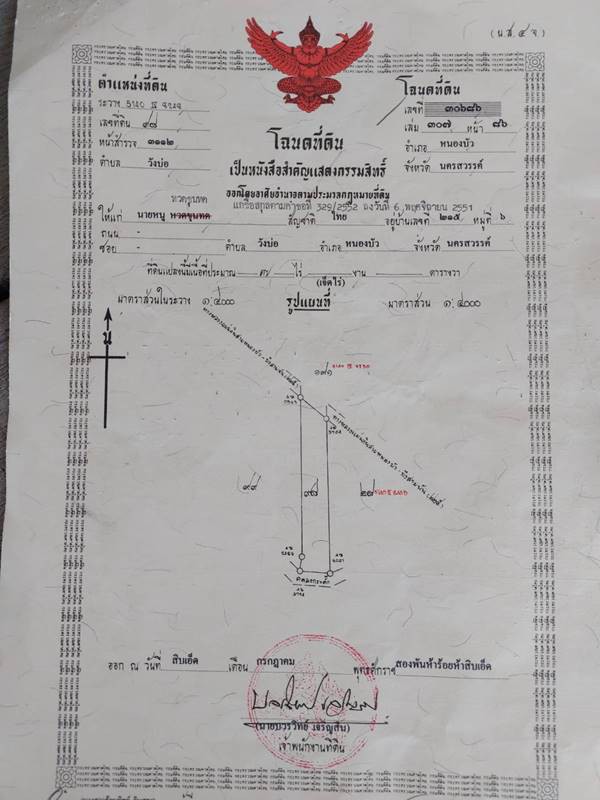 (น.ส. ๔ จ)
ตำแหน่งที่ดิน
ระวาง
เลขที่ดิน ๙๘
หน้าสำรวจ ๓๑๑๒
ตำบล วังบ่อ
โฉนดที่ดิน
เลขที่ ๓๐๖๘๖
เล่ม ๓๐๗ หน้า ๘๖
อำเภอ หนองบัว
จังหวัด นครสวรรค์
โฉนดที่ดิน
เป็นหนังสือสำคัญแสดงกรรมสิทธิ์
ออกโดยอาศัยอำนาจตามประมวลกฎหมายที่ดิน
แก้ชื่อสกุลตามคำขอที่ 329/2552 ลงวันที่ 6 พฤศจิกายน 2551
ให้แก่ นายหนู สัญชาติ ไทย อยู่บ้านเลขที่ ๒๑๕ หมู่ที่ ๖
ถนน -
ซอย - ตำบล วังบ่อ อำเภอ หนองบัว จังหวัด นครสวรรค์
ที่ดินแปลงนี้มีเนื้อที่ประมาณ ๗ ไร่ - งาน - ตารางวา
(เจ็ดไร่)
มาตราส่วนในระวาง ๑:๔๐๐๐
รูปแผนที่
มาตราส่วน ๑:๔๐๐๐
น
๑๙๑
๙๙
๙๘
๒๗
ออก ณ วันที่ สิบเอ็ด เดือน กรกฎาคม พุทธศักราช สองพันห้าร้อยห้าสิบเอ็ด
(นายบวรวิทย์ เจริญสิน)
เจ้าพนักงานที่ดิน